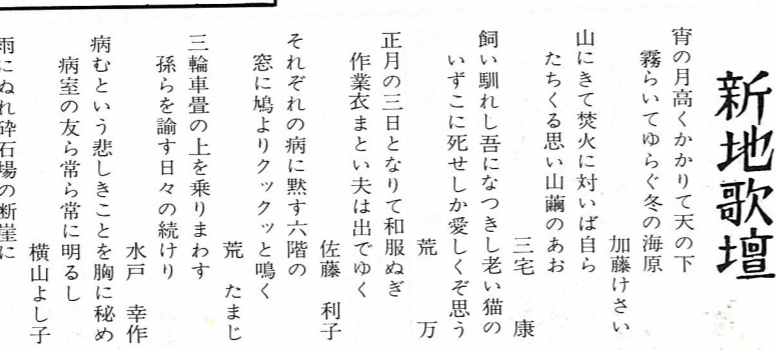 新地歌壇
宵の月高くかかりて天の下
霧らいてゆらぐ冬の海原
加藤けさい
山にきて焚火に対いば自ら
たちくる思い山繭のあお
三宅 康
飼い馴れし吾になつきし老い猫の
いずこに死せしか愛しくぞ思う
荒 万
正月の三日となりて和服ぬぎ
作業衣まとい夫は出でゆく
佐藤 利子
それぞれの病に黙す六階の
窓に鳩よりクックッと鳴く
荒 たまじ
三輪車畳の上を乗りまわす
孫らを諭す日々の続けり
水戸 幸作
病むという悲しきことを胸に秘め
病室の友ら常ら常に明るし
横山よし子
雨にぬれ砕石場の断崖に